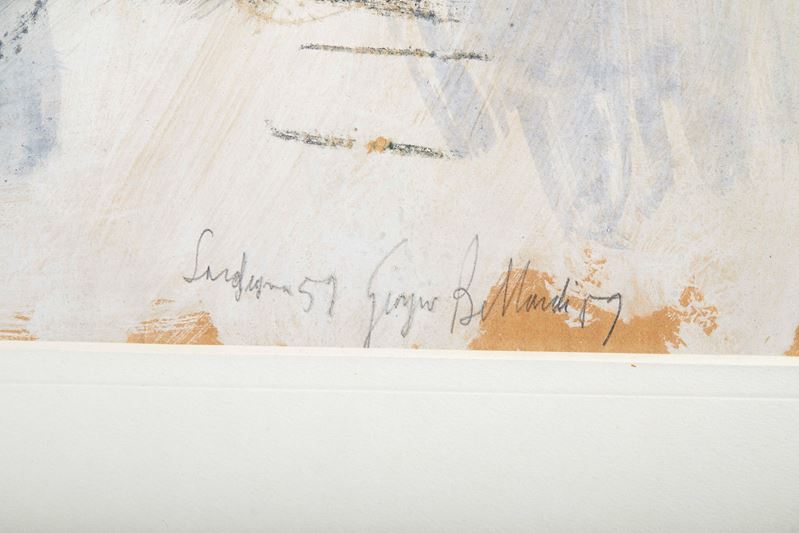 Sardegna 57 Giorgio Bellandi 57